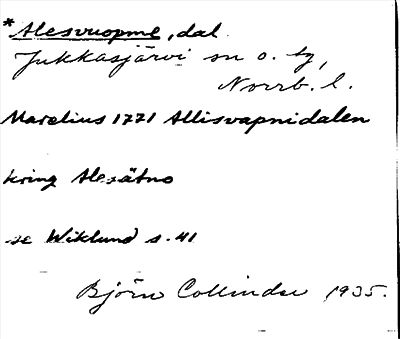 *Alesvuopme, dal
Jukkasjärvi sn o. tg,
Norrb. l.
Marelius 1771 Allisvapnidalen
kring Alesätno
se Wiklund s. 41
Björn Collinder 1935.